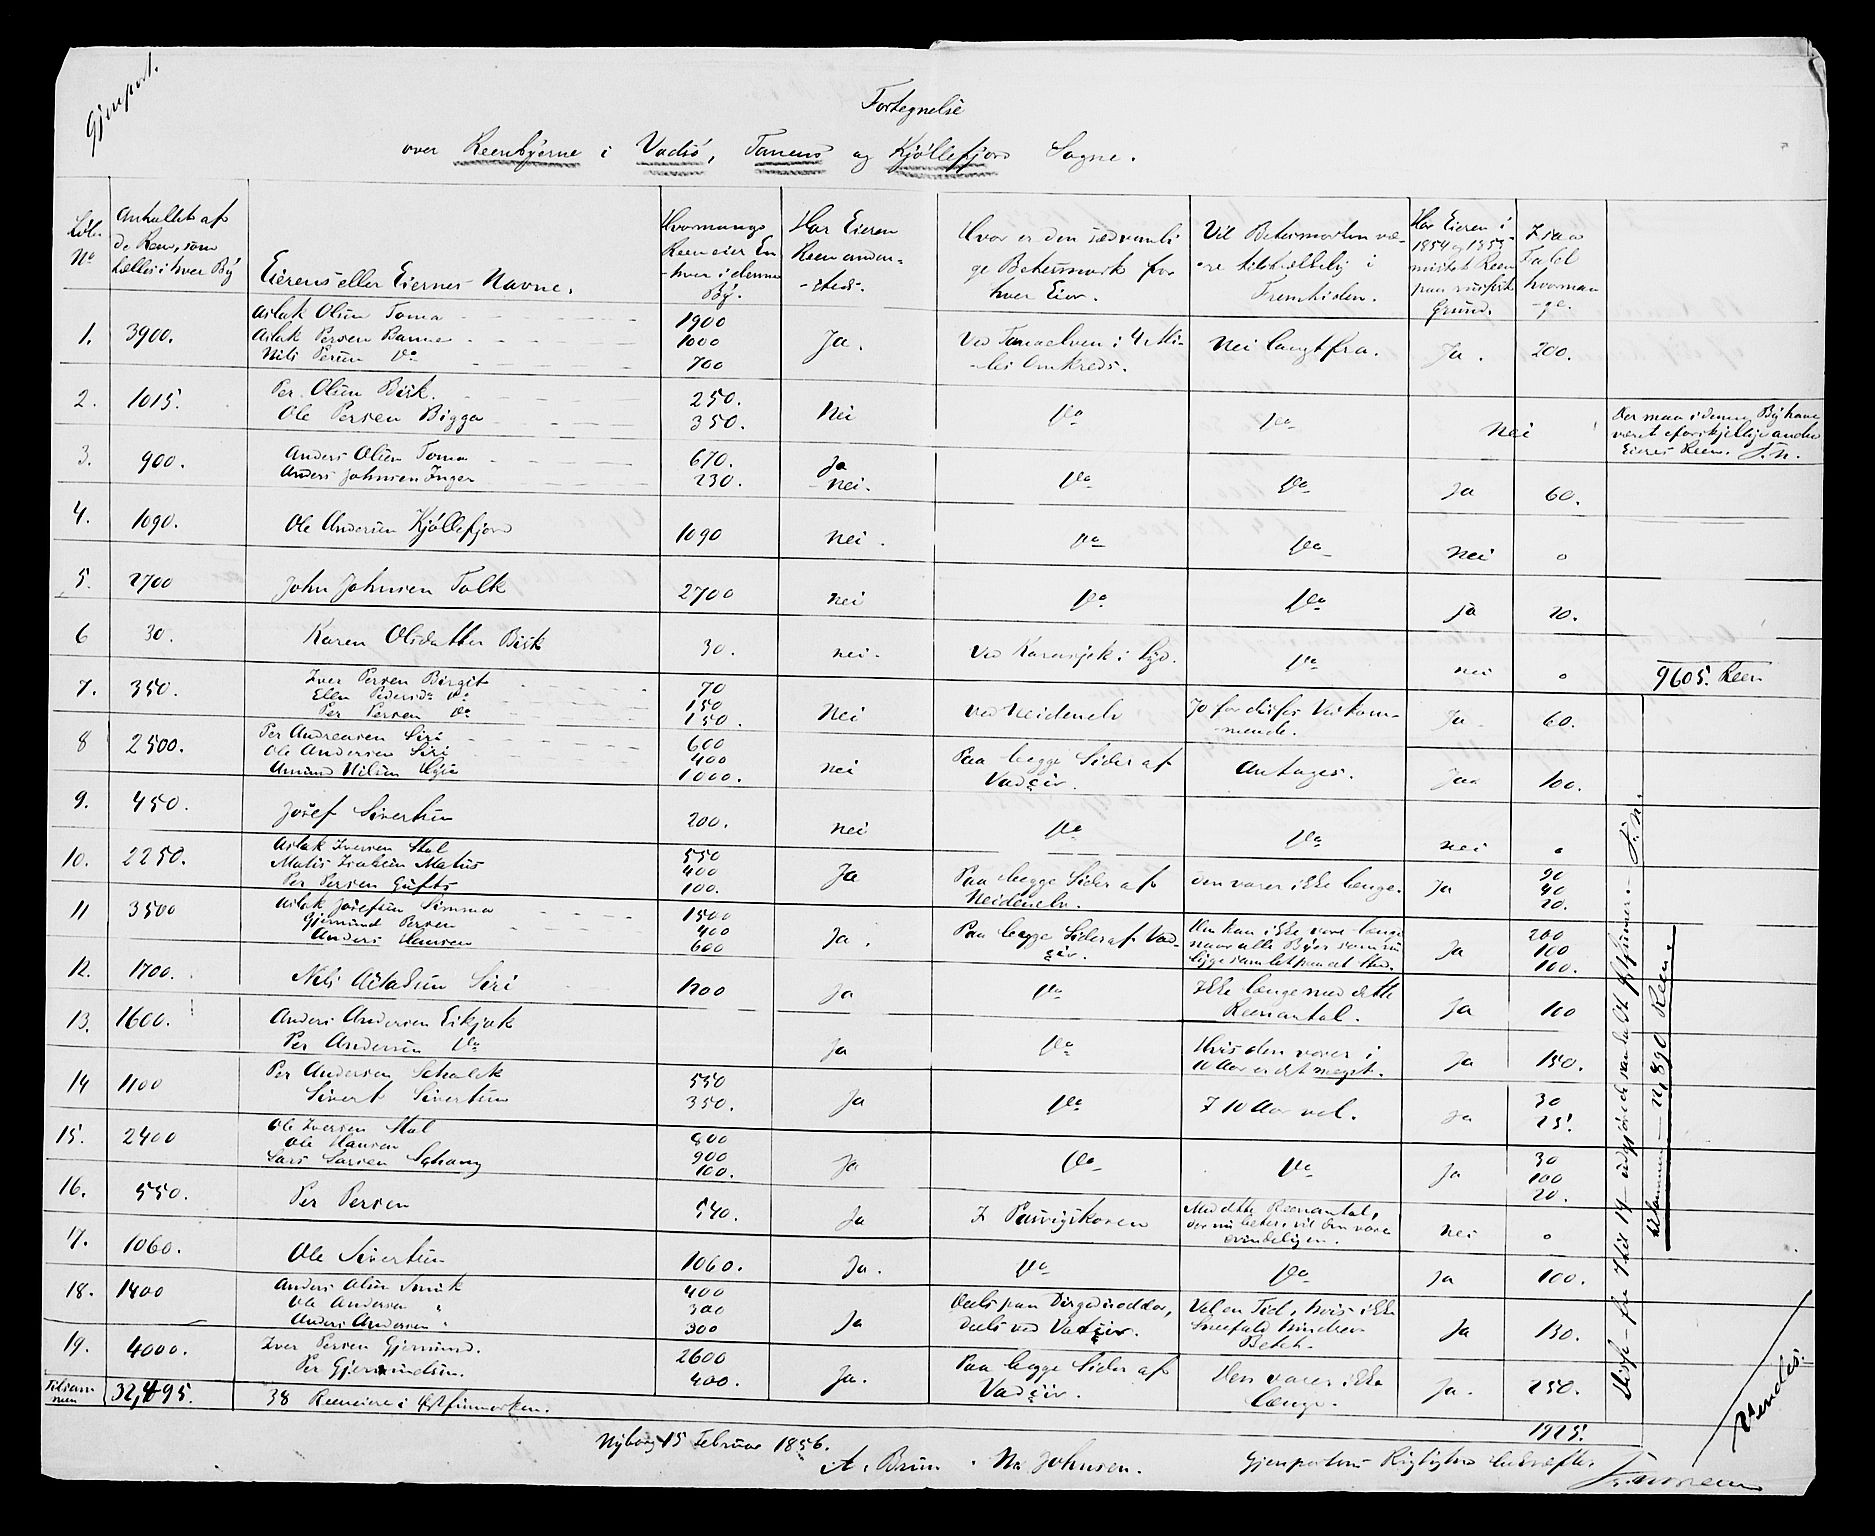 Gjenpart.
Fortegnelse
over Reenbyerne i Vadsö, Tanens og Kjöllefjord Sogne.
Löbe No
Antallet af de Reen, som holdes i hver By
Eierens eller Eiernes Navne.
Hvormange Reen eier En-hver i denne By.
Har Eieren Reen andensteds.
Hvor er den sædvanlige Betesmark for hver Eier.
Vil Betesmarken være tilstrækkelig i Fremtiden.
Har Eieren i 1854 og 1855 mistet Reen paa russisk Grund.
I saa Fald hvormange.
1. 3900. Aslak Olsen Toma 1900 Ja. Ved Tanaelven i 4 Miles Omkreds. Nei langtfra. Ja. 200.
Aslak Persen Banne 1000
Nils Persen Do 700
2. 1015. Per Olsen Bisk. 250. Nei Do Do Nei
Ole Persen Bigga 350.
Der maa i denne By have været forskjellige andre Eieres Reen. T.N.
3. 900. Anders Olsen Toma 670. Ja Do Do Ja 60.
Anders Johnsen Inger 230. Nei.
4. 1090. Ole Andersen Kjöllefjord 1090 Nei. Do Do Nei 0
5. 2700 John Johnsen Talk 2700 Nei Do Do Ja 20.
6 30. Karen Olsdatter Bisk 30. Nei. Ved Karasjok i Syd. Do Nei 0
9605. Reen
7. 350. Iver Persen Birgit 70 Nei Ved Neidenelv Jo for disses Vedkommende. Ja 60.
Ellen Pedersdr Do 150
Per Persen Do 150.
8 2500. Per Andreasen Siri 600 Nei Paa begge Sider af Vadsöir. Antages. Jaa 100.
Ole Andersen Siri 400
Amund Nilsen 1000.
9. 450. Josef Sivertsen 200. Nei Do Do Nei 0
10. 2250. Aslak Iversen Stal 550 Ja Paa begge Sider af Neidenelv. Den varer ikke længe. Ja 90
Matis Isaksen Matius 400 40
Per Persen Gufts 100. 20.
11 3500 Aslak Josefsen Simma 1500 Ja. Paa begge Sider af Vadsöir. Den kan ikke vare længe naar alle Byer som nu ligge samlet paa et Sted. Ja 200
Gjermund Persen 400 100
Anders Hansen 600 100.
12. 1700. Nils Aslaksen Siri 1200 Ja Do Ikke længe med dette Reenantal. Ja 100
13. 1600. Anders Andersen Eikjok Ja Do Hvis den varer i 10 Aar er det meget. Ja 150.
Per Andersen Do
14 1100 Per Andersen Schalok 550 Ja Do I 10 Aar vel. Ja 30
Sivert Sivertsen 350. 25.
15. 2400 Ole Iversen Stal 800 Ja Do Do Ja 30
Ole Hansen 900 100
Lars Larsen 100. 20.
16. 550. Per Persen 540. Ja I Pasvigskoven Med dette Reenantal, der nu beter, vil den vare evindeligen. Nei 0
17. 1060. Ole Sivertsen 1060. Ja. Do Do Ja 100.
18. 1400 Anders Olsen Smuk 400 Ja Deels paa deels ved Vadsöir. Vel en Tid, hvis ikke Sneefald hindrer Betet. Ja 130.
Ole Andersen " 300
Anders Andersen " 300
19. 4000. Iver Persen Gjermund. 2600 Ja. Paa begge Sider af Vadsöir. Den varer ikke længe. Ja. 250.
Per Gjermundsen. 400.
Tilsammen 32,495. 38 Reeneiere i Østfinmarken. 1925.
Disse - fra 7 til 19 - udgjöre de saakaldte T.N.
tilsammen - 22,890 Reen.
Nyborg 15 Februar 1856.
A. Brun. Ns Johnsen.
Gjenpartens Rigtighed bekræfter
Vendes.